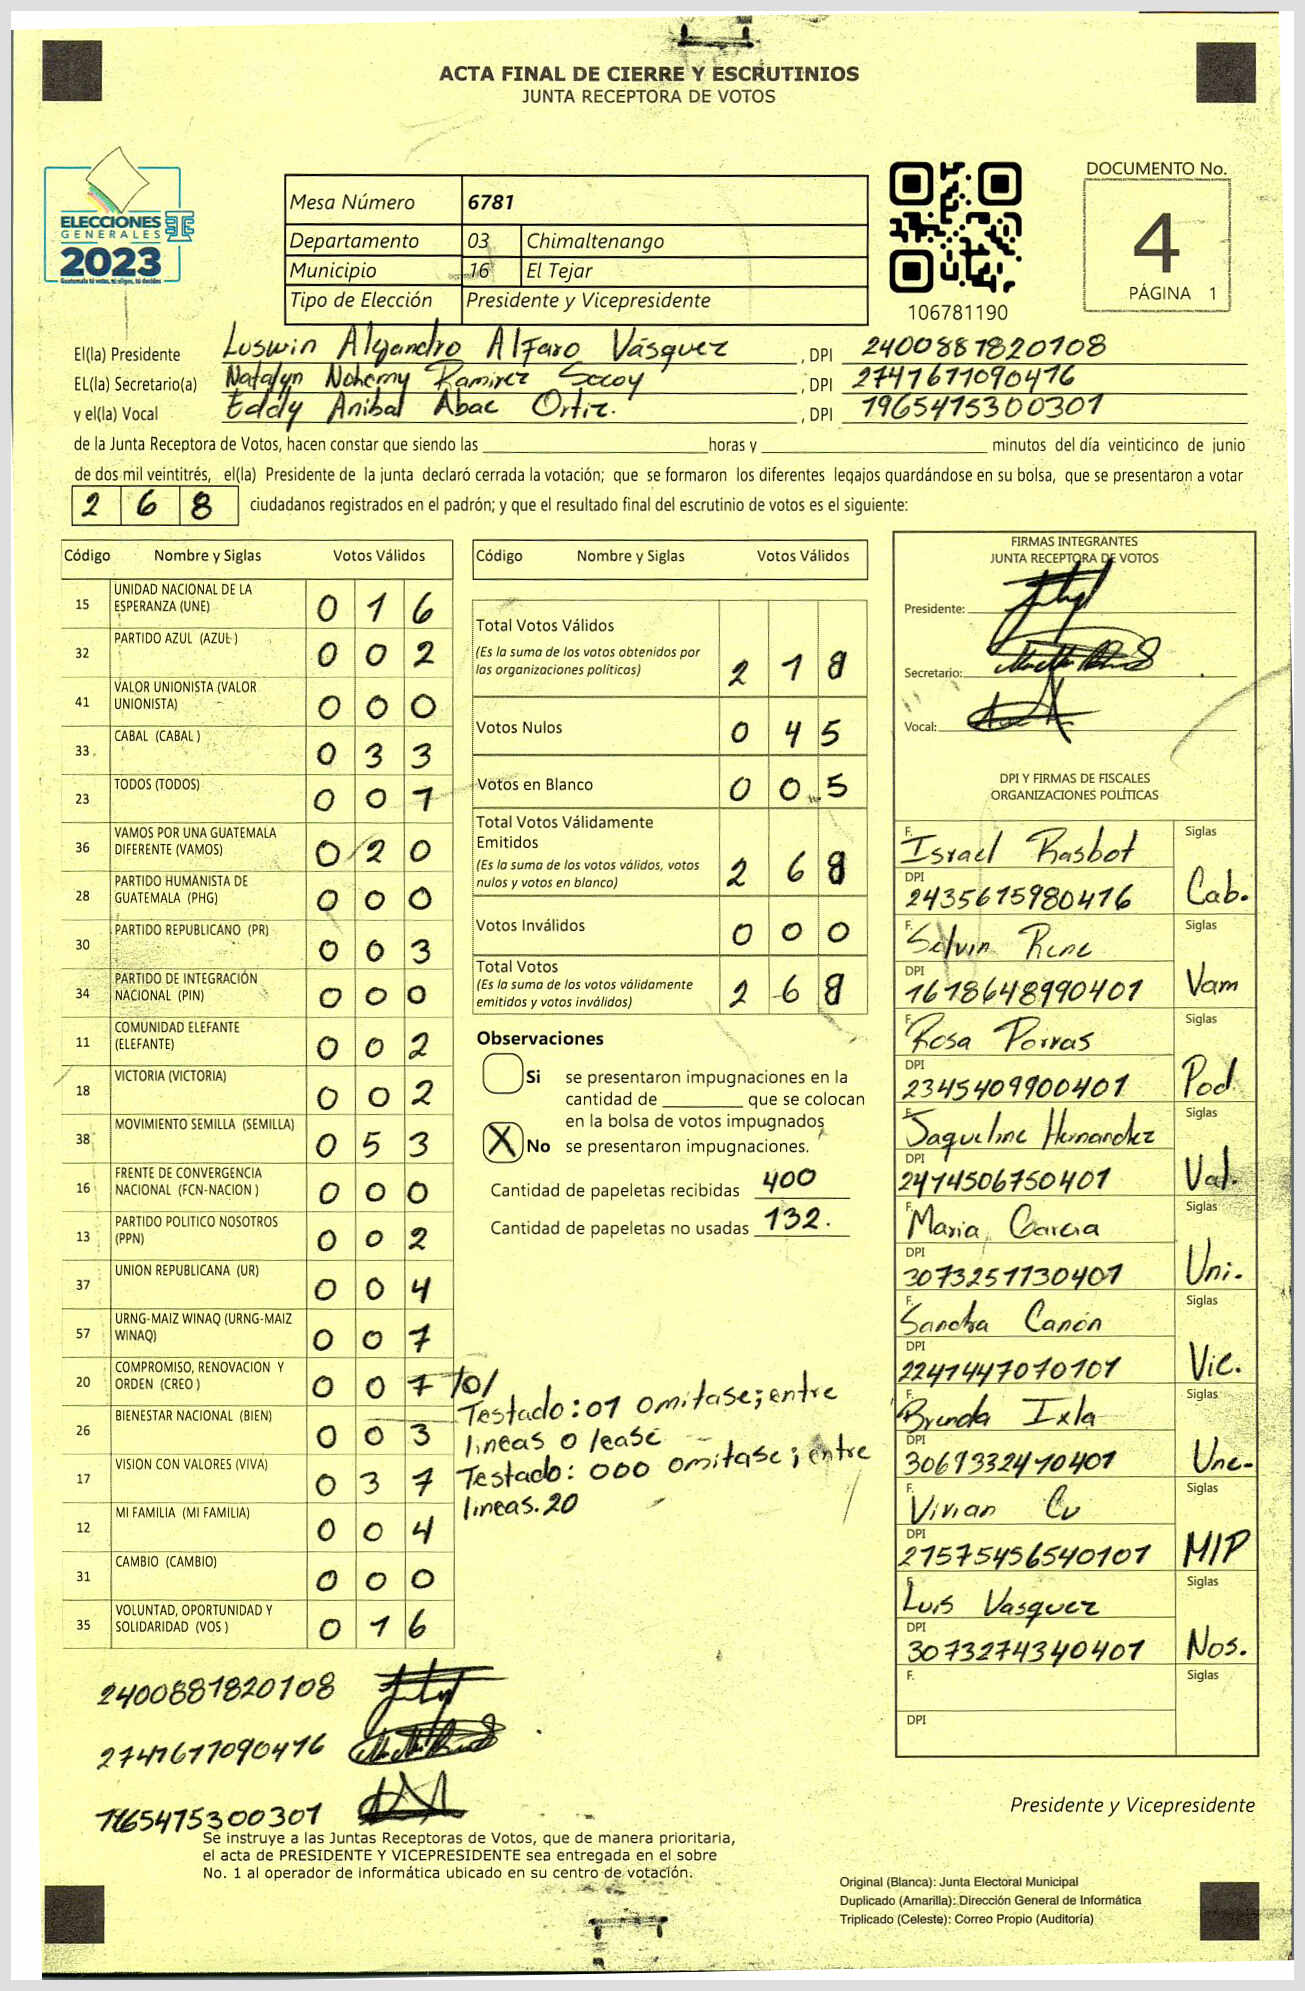 ACTA FINAL DE CIERRE Y ESCRUTINIOS
JUNTA RECEPTORA DE VOTOS
ELECCIONES
GENERALES
2023
Guatemala tú votas, tú eliges, tú decides
Mesa Número 6781
Departamento 03 Chimaltenango
Municipio 16 El Tejar
Tipo de Elección Presidente y Vicepresidente
106781190
DOCUMENTO No.
4
PÁGINA 1
El(la) Presidente Luswin Alejandro Alfaro Vásquez, DPI 2400881820108
EL(la) Secretario(a) Natalyn Nohemy Ramirez Socoy, DPI 2741611090416
y el(la) Vocal Eddy Anibal Abac Ortiz., DPI 1965415300301
de la Junta Receptora de Votos, hacen constar que siendo las ____ horas y ____ minutos del día veinticinco de junio
de dos mil veintitrés, el(la) Presidente de la junta declaró cerrada la votación; que se formaron los diferentes legajos guardándose en su bolsa, que se presentaron a votar
268 ciudadanos registrados en el padrón; y que el resultado final del escrutinio de votos es el siguiente:
Código Nombre y Siglas Votos Válidos
15 UNIDAD NACIONAL DE LA ESPERANZA (UNE) 0 1 6
32 PARTIDO AZUL (AZUL ) 0 0 2
41 VALOR UNIONISTA (VALOR UNIONISTA) 0 0 0
33 CABAL (CABAL ) 0 3 3
23 TODOS (TODOS) 0 0 7
36 VAMOS POR UNA GUATEMALA DIFERENTE (VAMOS) 0 2 0
28 PARTIDO HUMANISTA DE GUATEMALA (PHG) 0 0 0
30 PARTIDO REPUBLICANO (PR) 0 0 3
34 PARTIDO DE INTEGRACIÓN NACIONAL (PIN) 0 0 0
11 COMUNIDAD ELEFANTE (ELEFANTE) 0 0 2
18 VICTORIA (VICTORIA) 0 0 2
38 MOVIMIENTO SEMILLA (SEMILLA) 0 5 3
16 FRENTE DE CONVERGENCIA NACIONAL (FCN-NACION ) 0 0 0
13 PARTIDO POLITICO NOSOTROS (PPN) 0 0 2
37 UNION REPUBLICANA (UR) 0 0 4
57 URNG-MAIZ WINAQ (URNG-MAIZ WINAQ) 0 0 7
20 COMPROMISO, RENOVACION Y ORDEN (CREO ) 0 0 7 /0/
26 BIENESTAR NACIONAL (BIEN) 0 0 3
17 VISION CON VALORES (VIVA) 0 3 7
12 MI FAMILIA (MI FAMILIA) 0 0 4
31 CAMBIO (CAMBIO) 0 0 0
35 VOLUNTAD, OPORTUNIDAD Y SOLIDARIDAD (VOS ) 0 1 6
Código Nombre y Siglas Votos Válidos
Total Votos Válidos 2 1 8
(Es la suma de los votos obtenidos por
las organizaciones políticas)
Votos Nulos 0 4 5
Votos en Blanco 0 0 5
Total Votos Válidamente
Emitidos 2 6 8
(Es la suma de los votos válidos, votos
nulos y votos en blanco)
Votos Inválidos 0 0 0
Total Votos 2 6 8
(Es la suma de los votos válidamente
emitidos y votos inválidos)
Observaciones
Si se presentaron impugnaciones en la
cantidad de ____ que se colocan
en la bolsa de votos impugnados
X No se presentaron impugnaciones.
Cantidad de papeletas recibidas 400
Cantidad de papeletas no usadas 132.
Testado: 01 omitase; entre
lineas 0 lease
Testado: 000 omitase; entre
lineas. 20
FIRMAS INTEGRANTES
JUNTA RECEPTORA DE VOTOS
Presidente:
Secretario:
Vocal:
DPI Y FIRMAS DE FISCALES
ORGANIZACIONES POLÍTICAS
F. Israel Rasbot Siglas
DPI 2435615980416 Cab.
F. Selvin Rene Siglas
DPI 1618648990401 Vam
F. Rosa Porras Siglas
DPI 2345409900401 Pod.
F. Jaqueline Hernandez Siglas
DPI 2414506750401 Val.
F. Maria Garcia Siglas
DPI 3073251130401 Uni.
F. Sandra Canón Siglas
DPI 2241447070101 Vic.
F. Brenda Ixla Siglas
DPI 3069332410401 Une-
F. Vivian Cu Siglas
DPI 21575456540101 MIP
F. Luis Vasquez Siglas
DPI 3073274340401 Nos.
F. Siglas
DPI
2400881820108
2741611090416
1965415300301
Presidente y Vicepresidente
Se instruye a las Juntas Receptoras de Votos, que de manera prioritaria,
el acta de PRESIDENTE Y VICEPRESIDENTE sea entregada en el sobre
No. 1 al operador de informática ubicado en su centro de votación.
Original (Blanca): Junta Electoral Municipal
Duplicado (Amarilla): Dirección General de Informática
Triplicado (Celeste): Correo Propio (Auditoría)